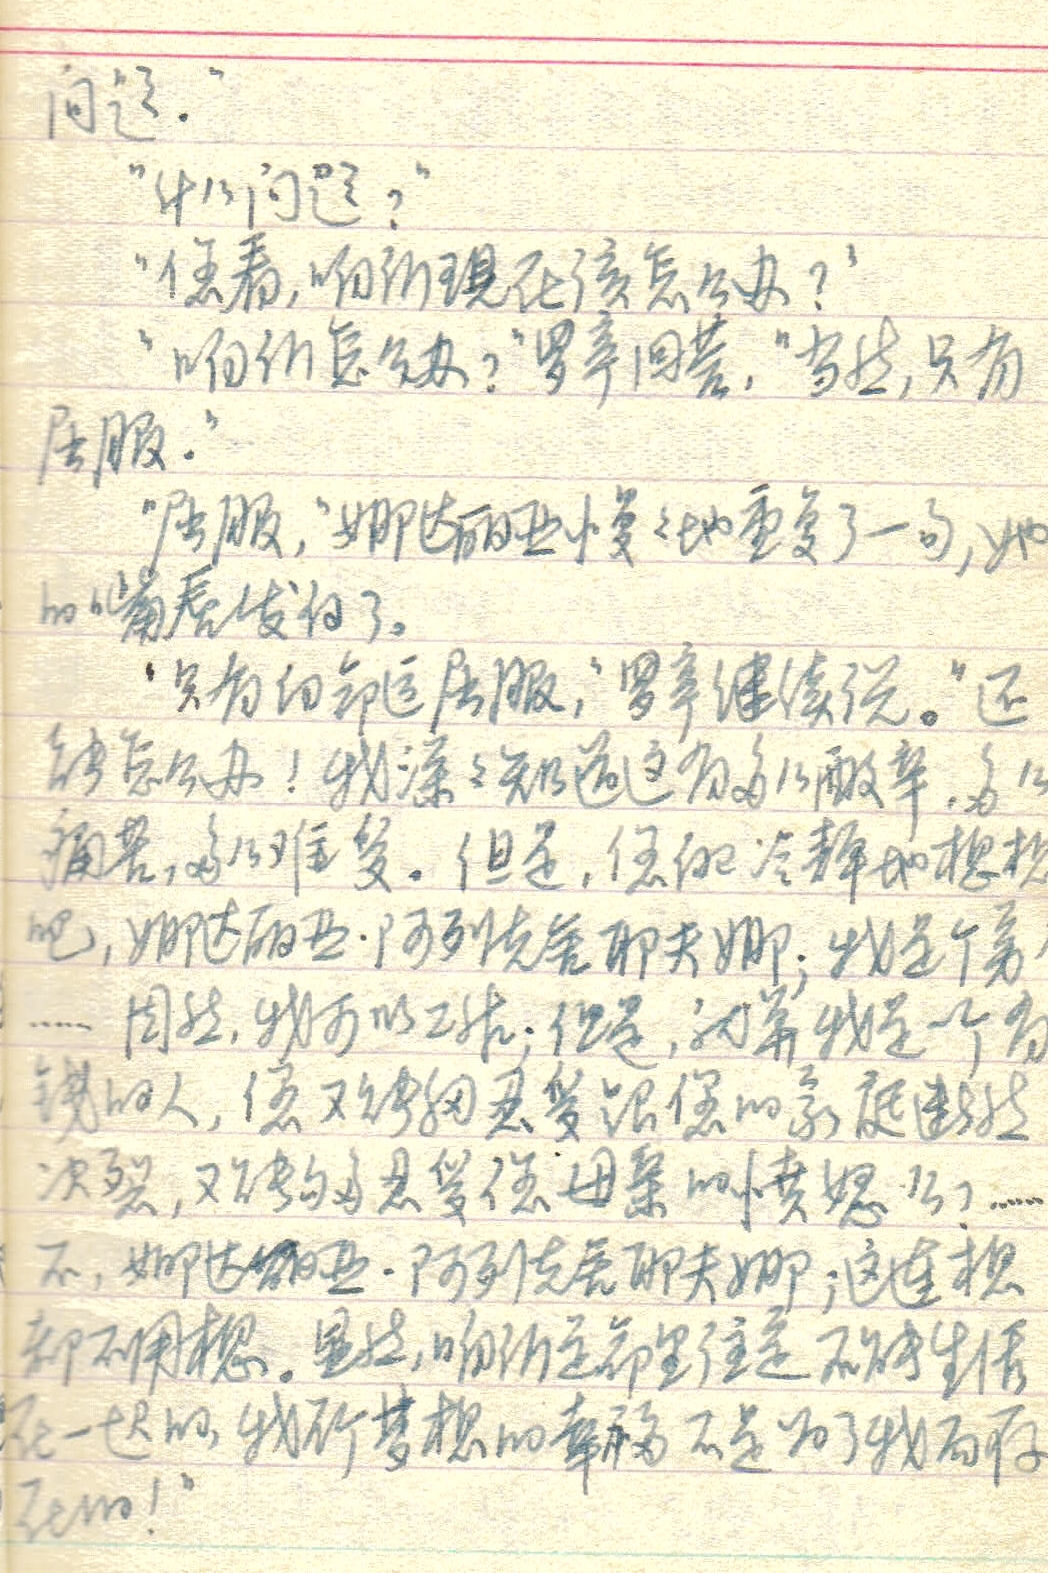 问题。”
“什么问题？”
“您看，咱们现在该怎么办？”
“咱们怎么办？”罗亭回答，“当然，只有
屈服。”
“屈服，”娜达丽亚慢々地重复了一句，她
的嘴唇发白了。
“只有向命运屈服，”罗亭继续说。“还
能怎么办！我深々知道这有多么酸辛，多么
痛苦，多么难受。但是，您自己冷静地想想
吧，娜达丽亚·阿列克塞耶夫娜；我是个穷人
……固然，我可以工作；但是，就算我是一个有
钱的人，您又能够忍受跟您的家庭断然
决裂，又能够忍受您母亲的愤怒么？……
不，娜达丽亚·阿列克塞耶夫娜；这连想
都不用想。显然，咱们是命里注定不能生活
在一起的，我所梦想的幸福不是为了我而存
在的！”